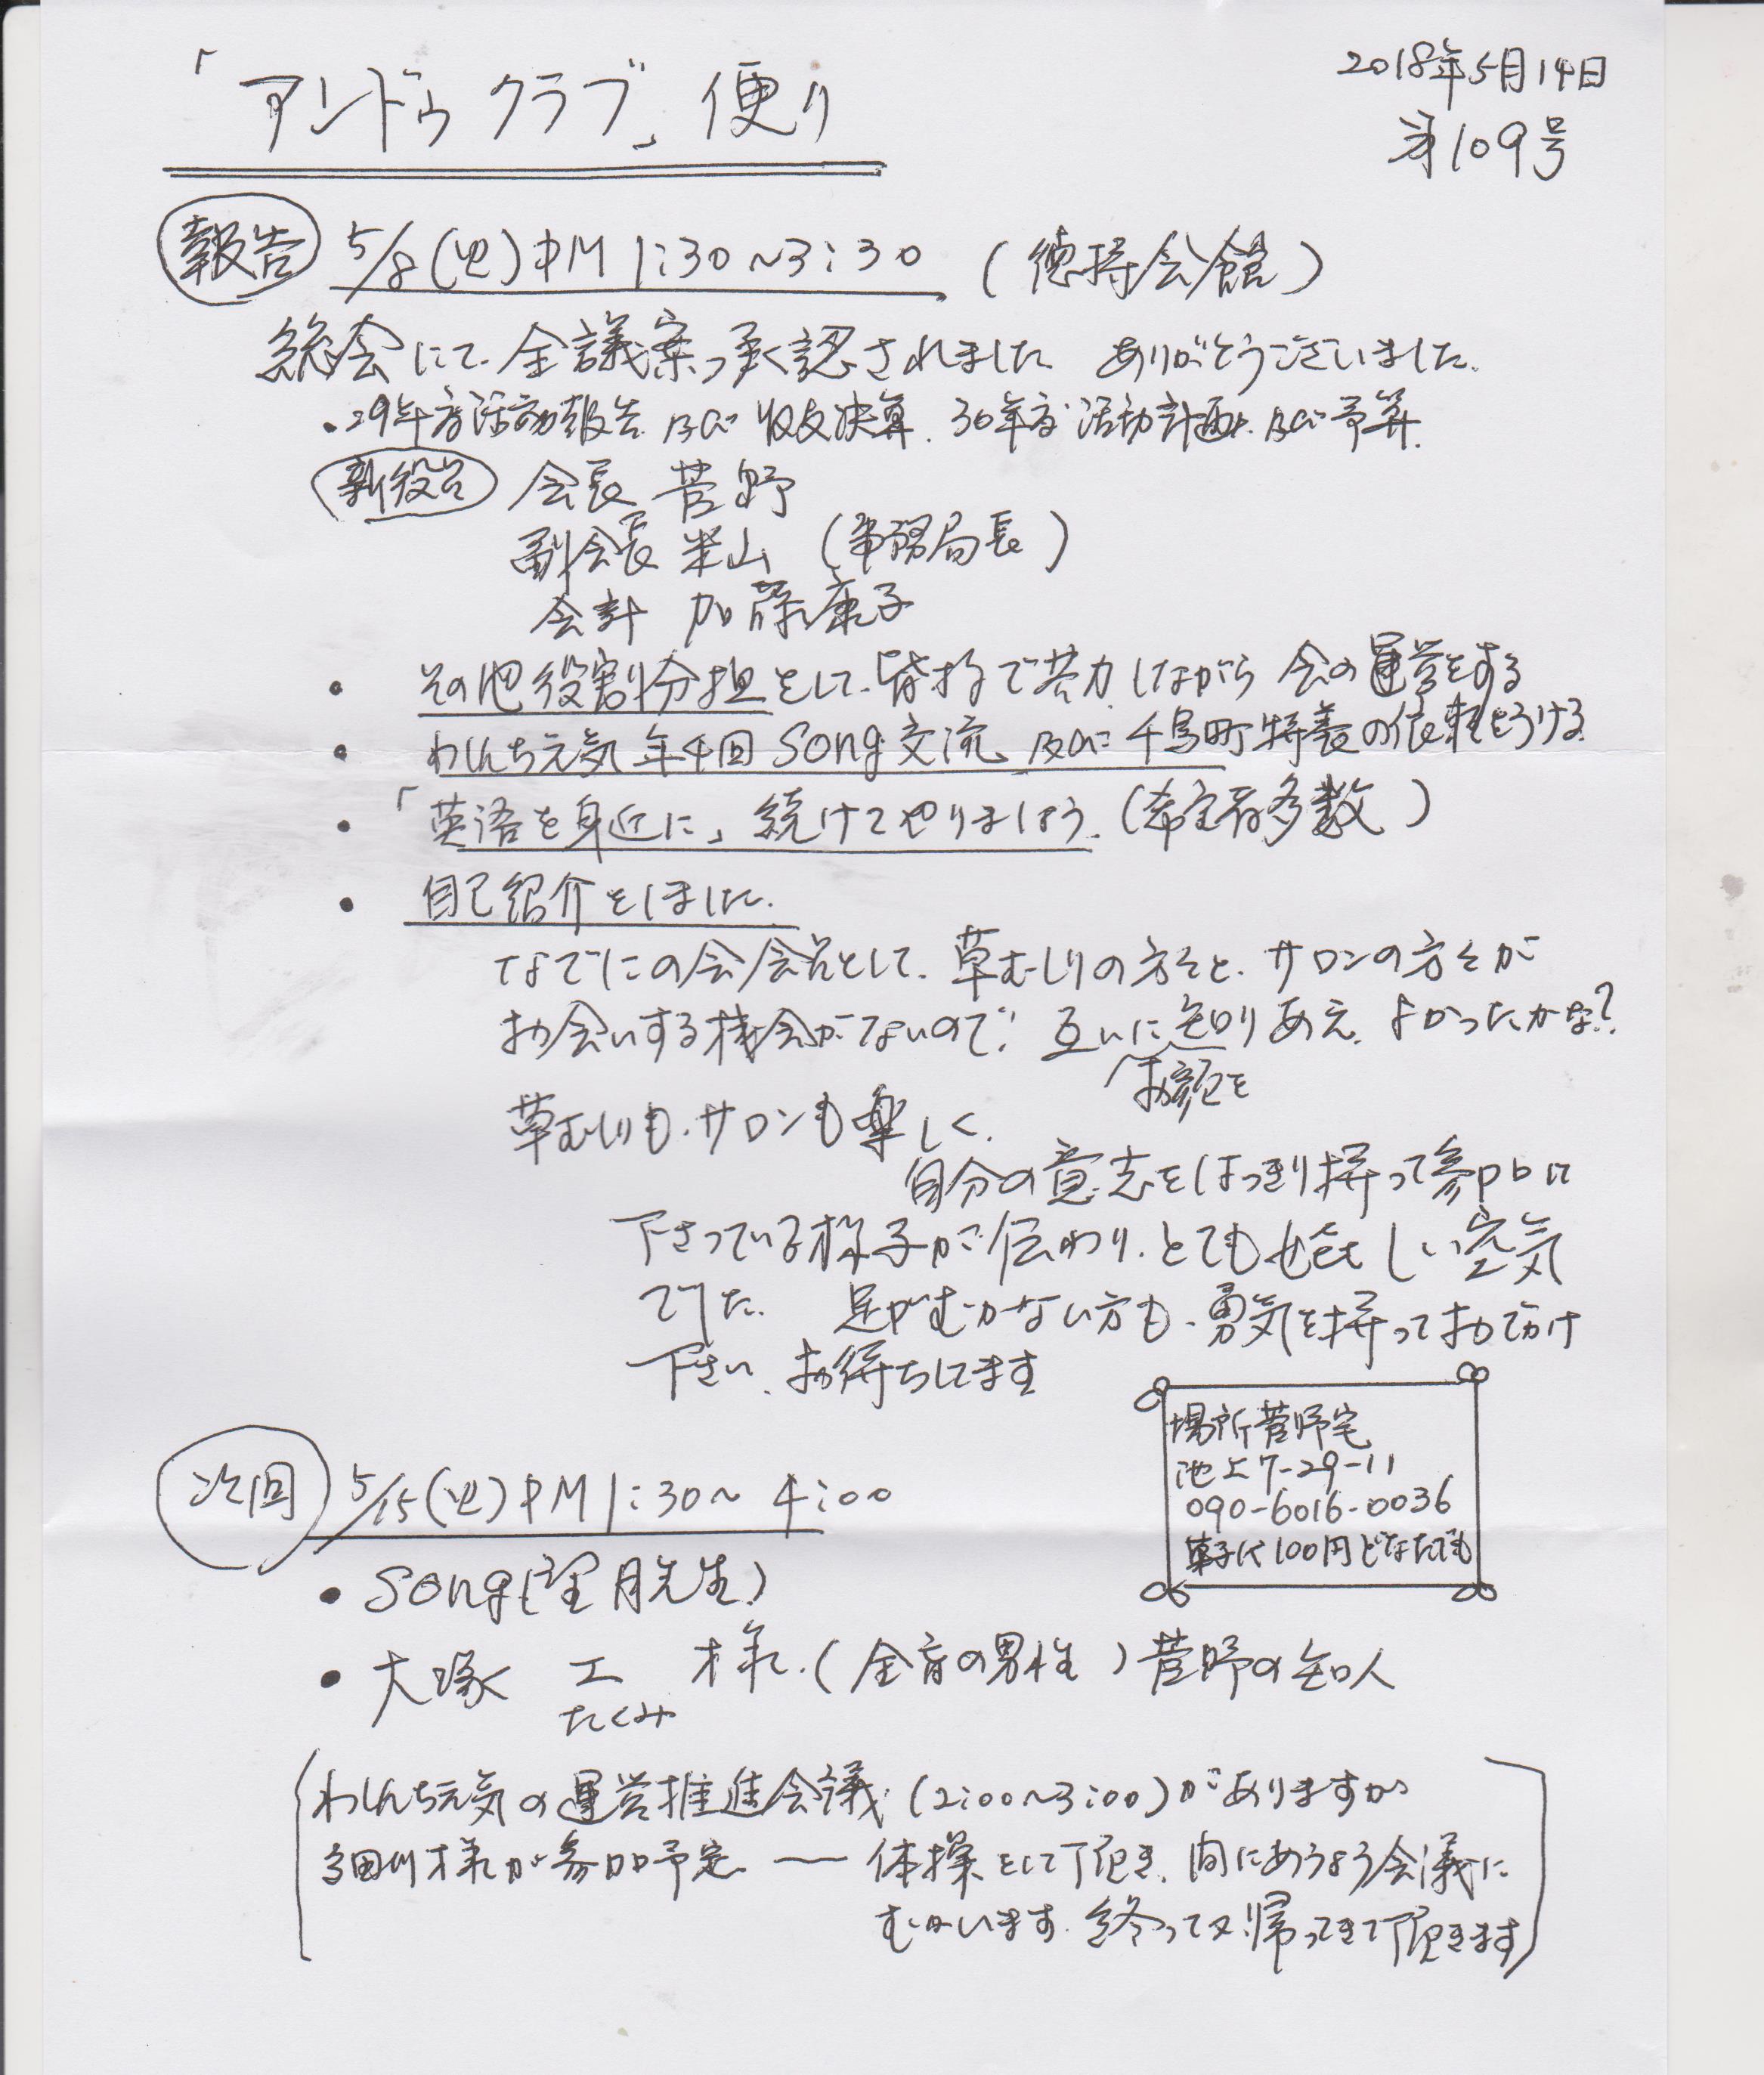 「アンドゥクラブ」便り
2018年5月14日
第109号
報告 5/8(火)PM1:30〜3:30 (徳持会館)
総会にて、全議案承認されました ありがとうございました。
・29年度活動報告及び収支決算、30年度活動計画及び予算。
新役員 会長 菅野
副会長 米山 (事務局長)
会計 加藤康子
・その他役割分担をして、皆様で協力しながら会の運営をする
・わしんち元気年4回Song交流、及び千鳥町特養の依頼をうける
・「英語を身近に」続けてやりましょう。(希望者多数)
・自己紹介をしました。
なでしこの会会員として、草むしりの方々と、サロンの方々が
お会いする機会がないので、互いに知りあえ、よかったかな?
お顔を
草むしりも、サロンも楽しく、
自分の意志をはっきり持って参加して
下さっている様子が伝わり、とても嬉しい空気
でした。 足がむかない方も、勇気を持っておでかけ
下さい、お待ちしてます
場所菅野宅
池上7-29-11
090-6016-0036
菓子代100円どなたでも
次回 5/15(火)PM1:30〜4:00
・Song(望月先生)
・大塚 工 様、(全盲の男性)菅野の知人
たくみ
わしんち元気の運営推進会議(2:00〜3:00)がありますが
細川様が参加予定 ― 体操をして頂き、間にあうよう会議に
むかいます。終って又帰ってきて頂きます